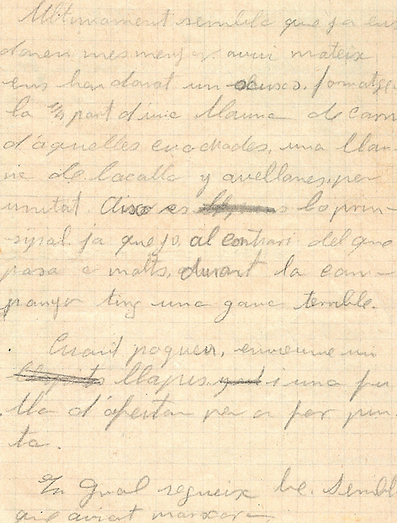 Ultimament sembla que ja ens
donen mes menjar. avui mateix
ens han donat un formatge
la 1/3 part d'una llauna de carn
d'aquelles quadrades, una llau-
na de y avellanes, per
unitat. es la prin-
sipal ja que jo al contrari del que
pasa a molts, durant la cam-
panya tinc una gana terrible.
Cuant poguen, envieume un
llapis i una fu
lla d'afeitar per a fer pun-
ta.
En Qual segueix be. Sembla
que aviat marxara